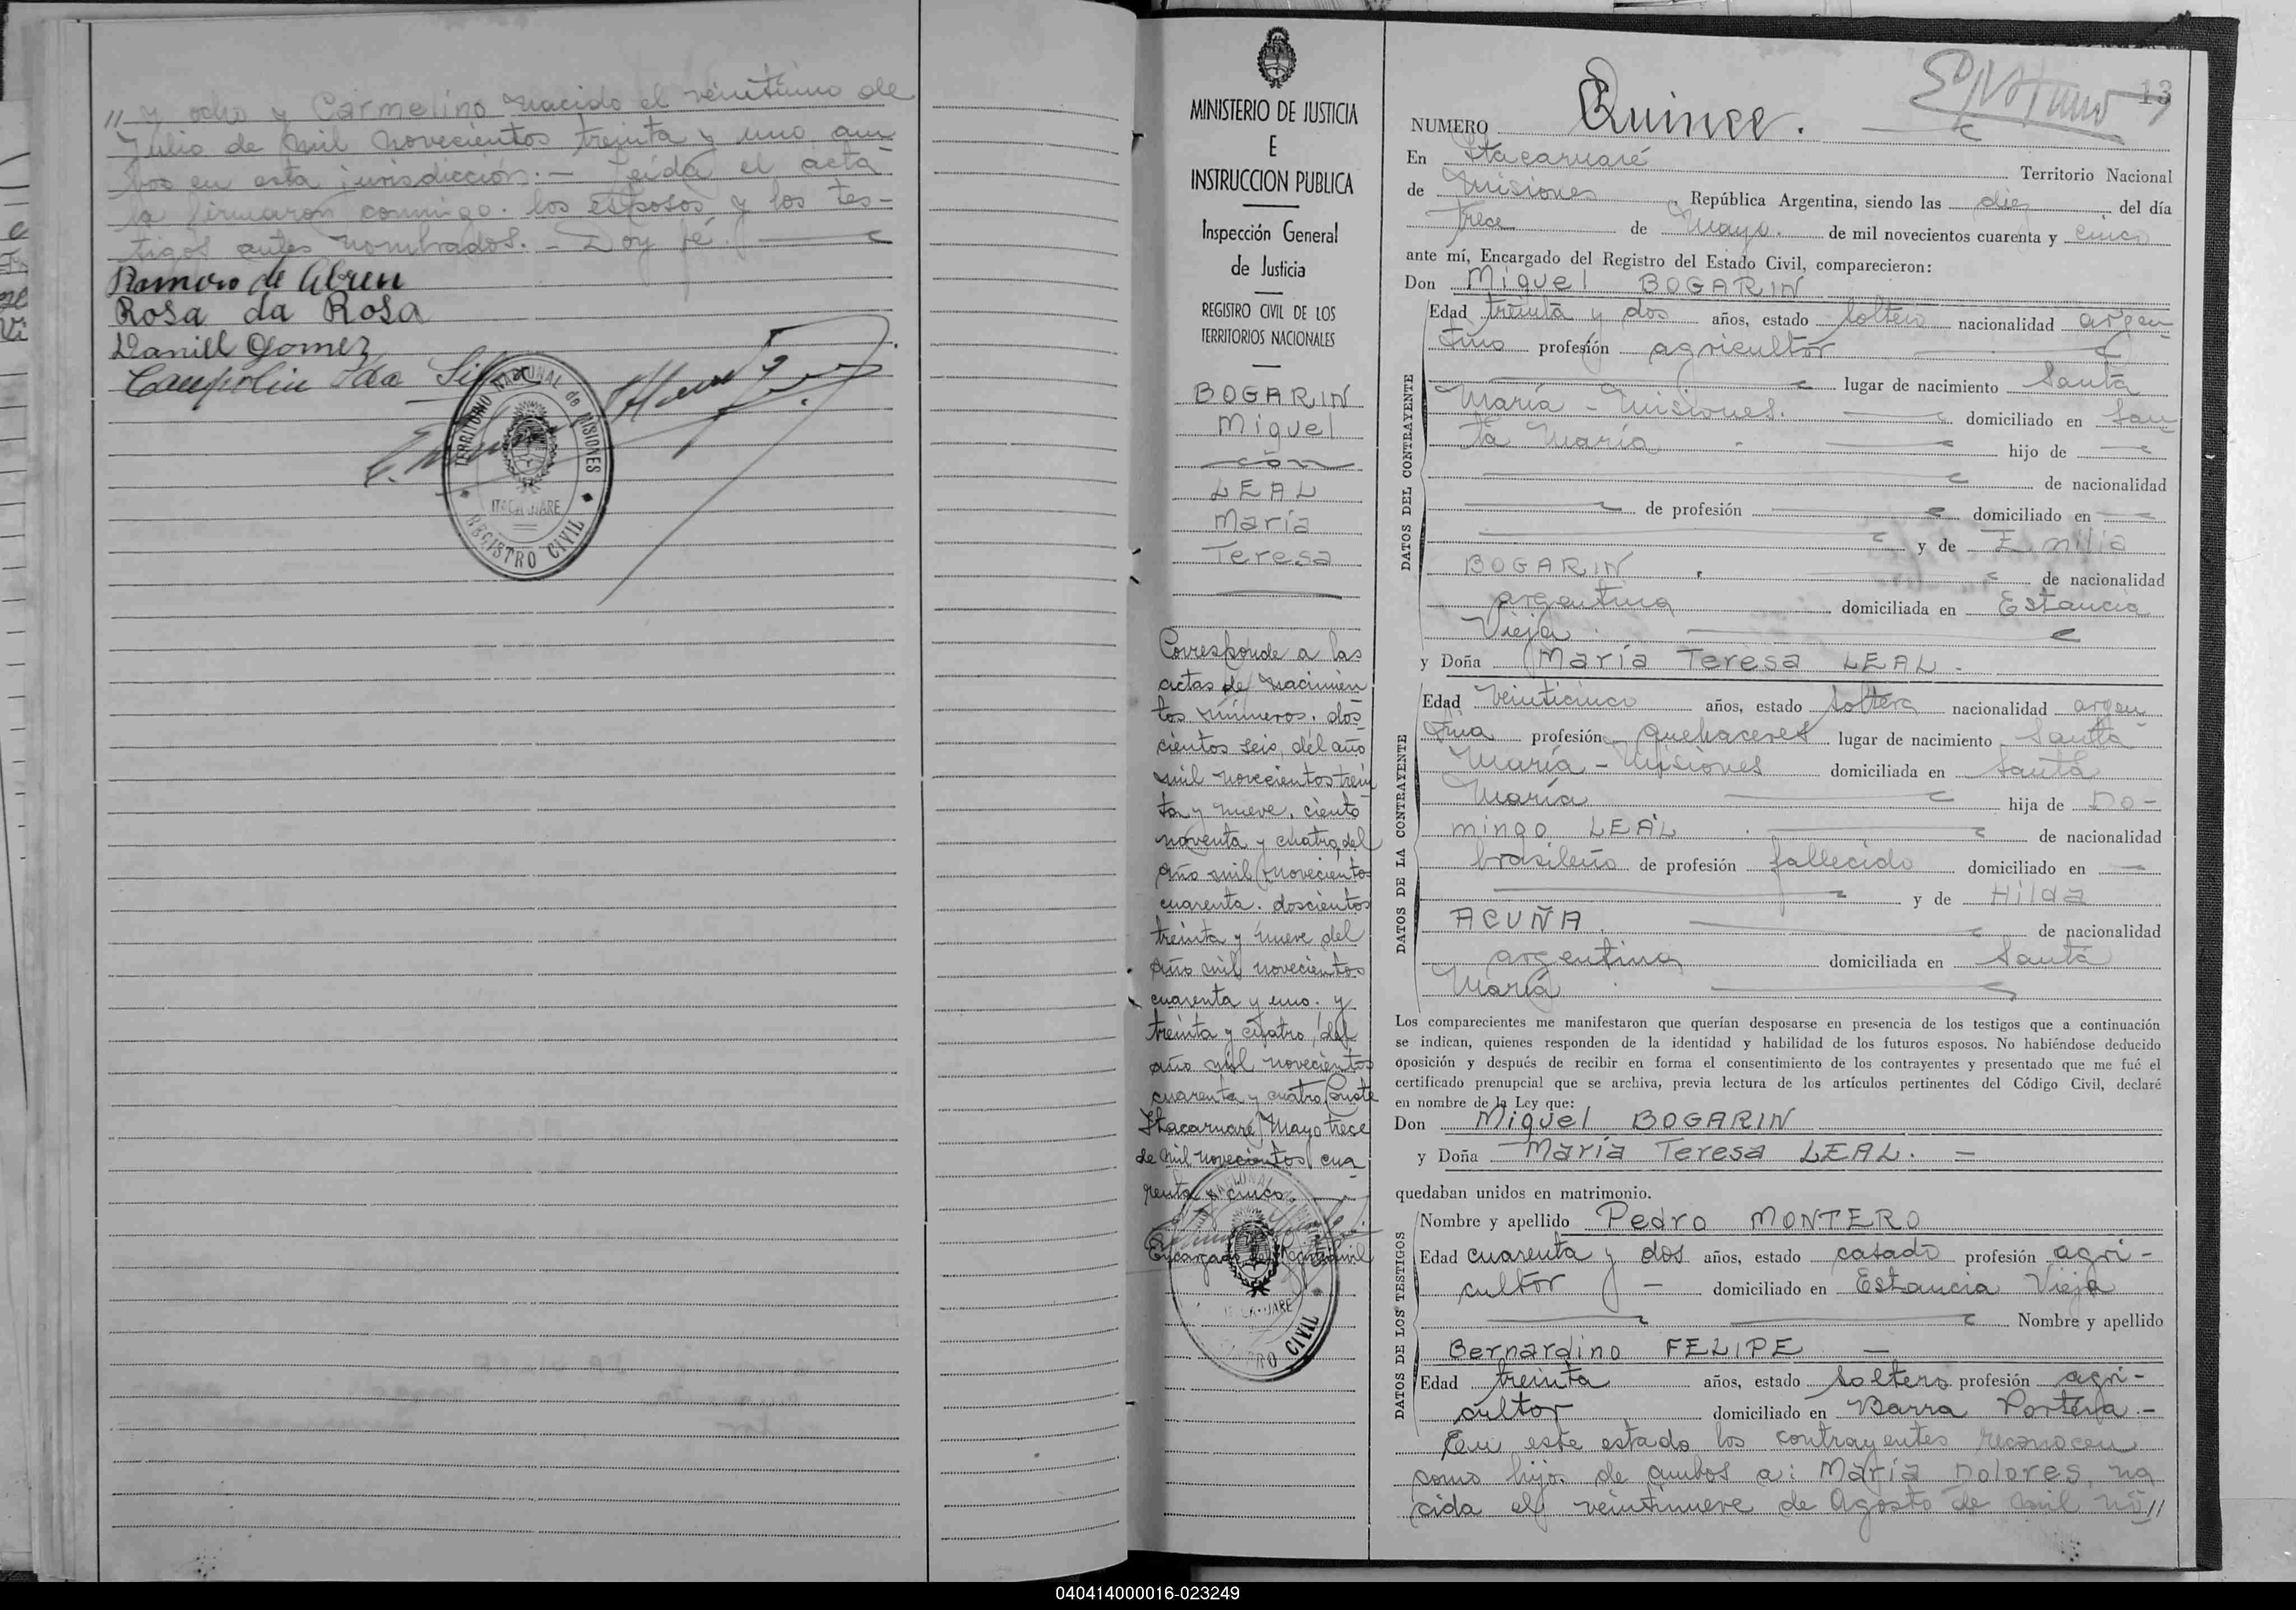 // y ocho y Carmelino nacido el veintiuno de
Julio de mil novecientos treinta y uno am
bos en esta jurisdicción.- Leida el acta
la firmaron conmigo. los esposos y los tes-
tigos antes nombrados. - Doy fé.
Ramoro de Abreu
Rosa da Rosa
Daniel Gomez
da Silva
TERRITORIO NACIONAL de MISIONES
ITACARUARE
REGISTRO CIVIL
MINISTERIO DE JUSTICIA
E
INSTRUCCION PUBLICA
Inspección General
de Justicia
REGISTRO CIVIL DE LOS
TERRITORIOS NACIONALES
BOGARIN
Miguel
con
LEAL
María
Teresa
Corresponde a las
actas de nacimien
tos números. dos
cientos seis, del año
mil novecientos trein
ta y nueve, ciento
noventa y cuatro, del
año mil novecientos
cuarenta. doscientos
treinta y nueve del
año mil novecientos
cuarenta y uno. y
treinta y cuatro, del
año mil novecientos
cuarenta y cuatro. Conste
Itacaruaré, Mayo trece
de mil novecientos cua
renta y cinco.
Encargado
REGISTRO CIVIL
13
NUMERO Quince.
En Itacaruaré Territorio Nacional
de Misiones, República Argentina, siendo las diez del día
trece de Mayo. de mil novecientos cuarenta y cinco
ante mí, Encargado del Registro del Estado Civil, comparecieron:
Don Miguel BOGARIN
DATOS DEL CONTRAYENTE
Edad treinta y dos años, estado soltero nacionalidad argen
tino profesión agricultor
lugar de nacimiento Santa
María - Misiones. domiciliado en San
ta María hijo de
de nacionalidad
de profesión domiciliado en
y de Emilia
BOGARIN de nacionalidad
argentina domiciliada en Estancia
Vieja
y Doña María Teresa LEAL.
DATOS DE LA CONTRAYENTE
Edad veinticinco años, estado soltera nacionalidad argen
tina profesión quehaceres lugar de nacimiento Santa
María - Misiones domiciliada en Santa
María hija de Do-
mingo LEAL de nacionalidad
brasileño de profesión fallecido domiciliado en
y de Hilda
ACUÑA de nacionalidad
argentina domiciliada en Santa
María
Los comparecientes me manifestaron que querían desposarse en presencia de los testigos que a continuación
se indican, quienes responden de la identidad y habilidad de los futuros esposos. No habiéndose deducido
oposición y después de recibir en forma el consentimiento de los contrayentes y presentado que me fué el
certificado prenupcial que se archiva, previa lectura de los artículos pertinentes del Código Civil, declaré
en nombre de la Ley que:
Don Miguel BOGARIN
y Doña María Teresa LEAL. -
quedaban unidos en matrimonio.
DATOS DE LOS TESTIGOS
Nombre y apellido Pedro MONTERO
Edad cuarenta y dos años, estado casado profesión agri-
cultor - domiciliado en Estancia Vieja
Nombre y apellido
Bernardino FELIPE -
Edad treinta años, estado soltero profesión agri-
cultor domiciliado en Barra Portera.-
En este estado los contrayentes reconocen
como hijos de ambos a: María Dolores, na
cida el veintinueve de Agosto de mil no//
040414000016-023249